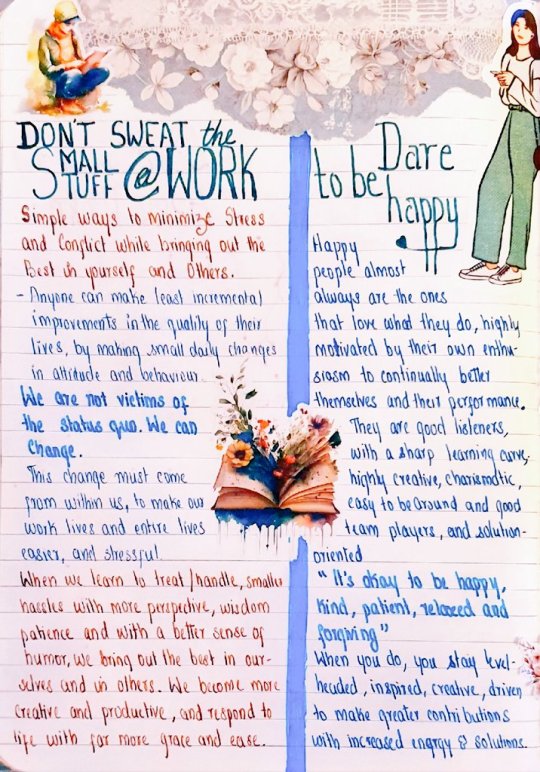 DON'T SWEAT the
SMALL
STUFF @ WORK
Simple ways to minimize Stress
and Conflict while bringing out the
Best in yourself and Others.
- Anyone can make least incremental
improvements in the quality of their
lives, by making small daily changes
in attitude and behaviour
We are not victims of
the status quo. We can
Change.
This change must come
from within us, to make our
work lives and entire lives
easier, and stressful
When we learn to treat/handle, smaller
hassles with more perspective, wisdom
patience and with a better sense of
humor, we bring out the best in our-
selves and in others. We become more
creative and productive, and respond to
life with far more grace and ease.
Dare
to be
happy
Happy
people almost
always are the ones
that love what they do, highly
motivated by their own enthu-
siasm to continually better
themselves and their performance.
They are good listeners,
with a sharp learning curve,
highly creative, charismatic,
easy to be around and good
team players, and solution-
oriented
"It's okay to be happy,
kind, patient, relaxed and
forgiving"
When you do, you stay level-
headed, inspired, creative, driven
to make greater contributions
with increased energy & solutions.